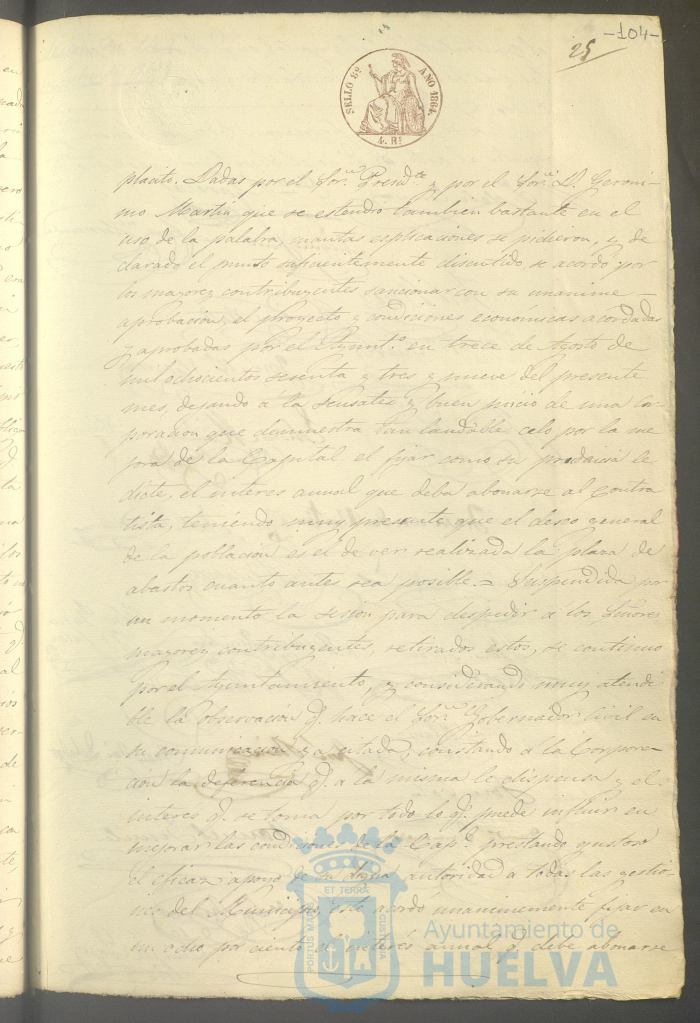 -104-
25
SELLO 8º AÑO 1864.
4. Rs
placito. Dadas por el Sor. Presidte y por el Sor. D. Geroni-
mo Martin, que se estendio tambien bastante en el
uso de la palabra, cuantas esplicaciones se pidieron, y de
clarado el punto suficientemente discutido, se acordó por
los mayores contribuyentes sancionar con su unanime
aprobacion, el proyecto y condiciones economicas acordadas
y aprobadas por el Ayuntº en trece de Agosto de
mil ochocientos sesenta y tres y nueve del presente
mes, dejando a la sensatez y buen juicio de una Cor
poracion que demuestra tan laudable celo por la me
jora de la Capital el fijar como su prudencia le
dicte, el interes anual que deba abonarse al contra
tista, teniendo muy presente que el deseo general
de la poblacion es el de ver realizada la plaza de
abastos cuanto antes sea posible. = Suspendida por
un momento la sesion para despedir a los Señores
mayores contribuyentes, retirados estos, se continuo
por el Ayuntamiento, y considerando muy atendi
ble la observacion q. hace el Sor. Gobernador Civil en
su comunicacion ya citada, constando a la Corpora-
cion la deferencia q. a la misma le dispensa y el
interes q. se toma por todo lo q. puede influir en
mejorar las condiciones de la Capl. prestando gustoso
el eficaz apoyo de su digna autoridad a todas las gestio-
nes del Municipio, este acordó unanimemente fijar en
un ocho por ciento el interes anual q. debe abonarse
PORTUS MARIS ET TERRAE CUSTODIA
Ayuntamiento de
HUELVA